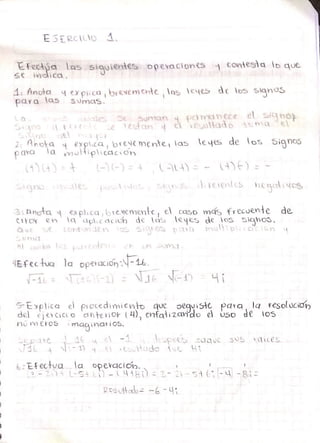 EJERCICIO 1.
Efectúa las siguientes operaciones y contesta lo que
se indica.
1: Anota y explica, brevemente, las leyes de los signos
para las sumas.
Se suman y permanece el signo
Signo se restan y el resultado toma el
2. Anota y explica, brevemente, las leyes de los signos
para la multiplicación
(+)(+) = + (-)(-) = + (-)(+) = - (+)(-) = -
Signos iguales positivos, signos diferentes negativos.
3: Anota y explica, brevemente, el caso más frecuente de
error en la aplicación de las leyes de los signos.
Que se confunden los signos para multiplicación y
suma
en una suma.
4: Efectua la operación: √-16
√-16 = √(16)(-1) = √16 √-1 = 4i
5: Explica el procedimiento que seguiste para la resolución
del ejercicio anterior (4), enfatizando el uso de los
números imaginarios.
Separe 16 y el -1, después saque sus raices
√16 y √-1 y el resultado fue 4i
6: Efectua la operación.
Resultado = -6 - 4i